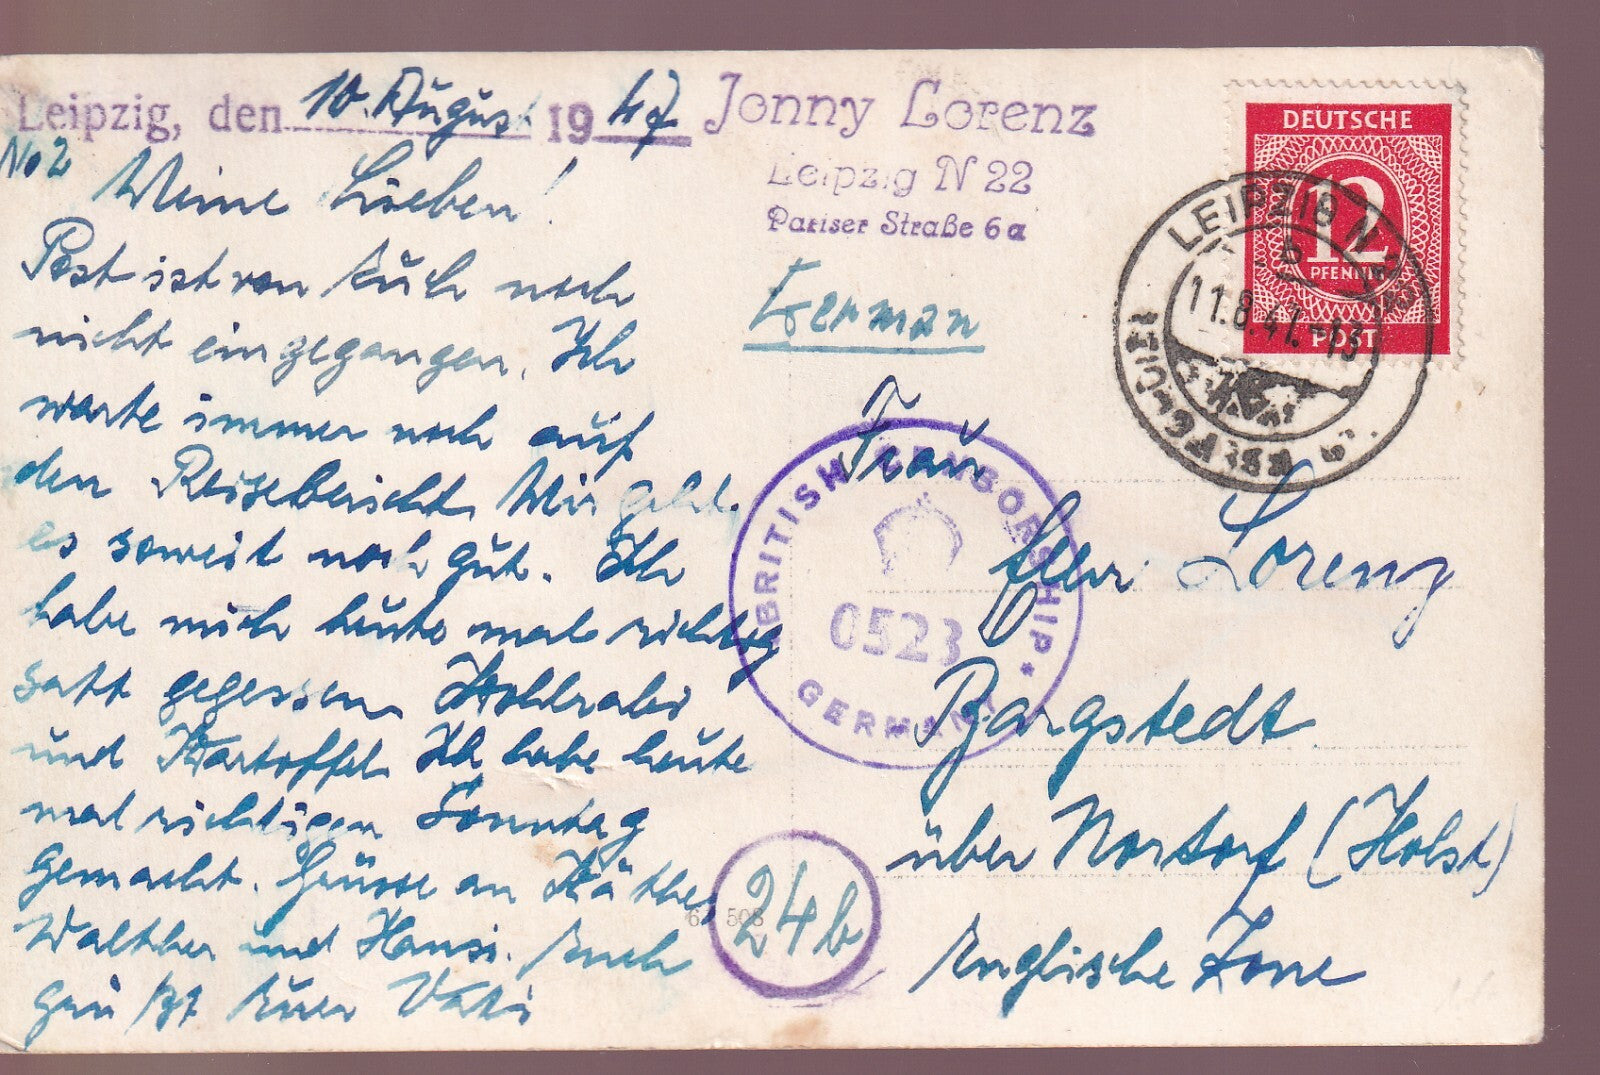 Leipzig, den 10. August 1947
No 2
Meine Lieben!
Post ist von Euch noch
nicht eingegangen. Ich
warte immer noch auf
den Reisebericht. Wir geht
es soweit noch gut. Ich
habe mich heute mal richtig
satt gegessen Kohlrabi
und Kartoffel. Ich habe heute
mal richtigen Sonntag
gemacht. Grüsse an Käthe,
Walther und Hansi. Euch
grüßt Euer Vati
Jonny Lorenz
Leipzig N 22
Pariser Straße 6a
German
DEUTSCHE
12
PFENNIG
POST
LEIPZIG N
b
11.8.47.-13
BRITISH CENSORSHIP
0523
GERMANY
Frau
Lorenz
Bargstedt
über Nortorf (Holst)
Englische Zone
24b
508